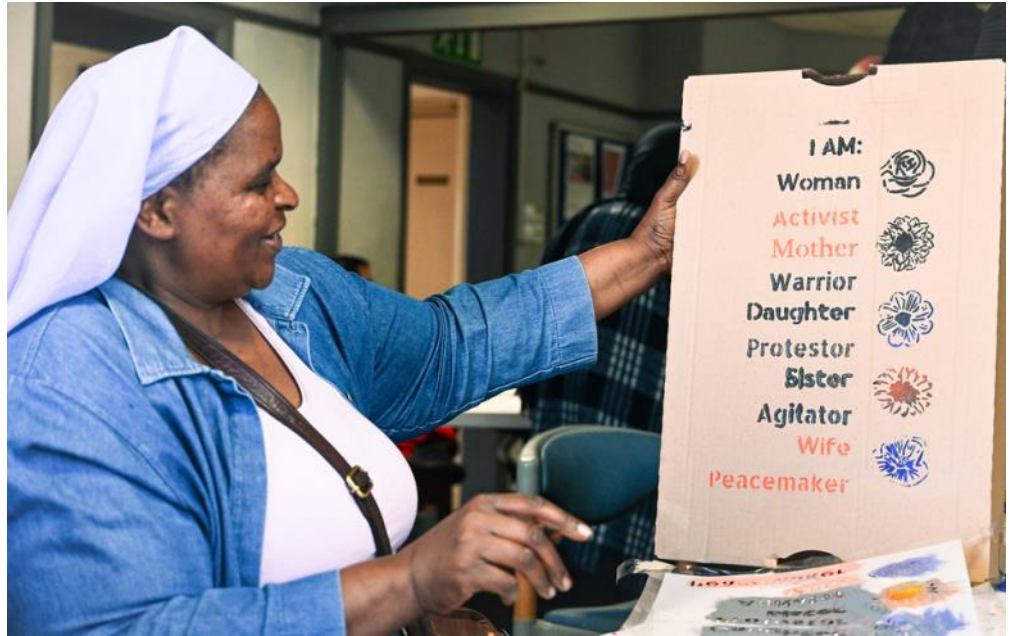 I AM:
Woman
Activist
Mother
Warrior
Daughter
Protestor
Sister
Agitator
Wife
Peacemaker